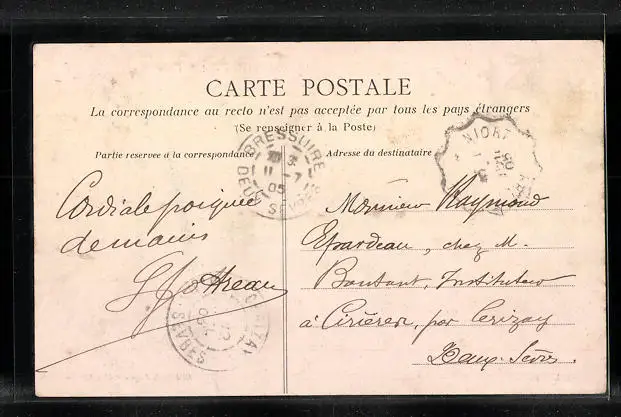 CARTE POSTALE
La correspondance au recto n'est pas acceptée par tous les pays étrangers
(Se renseigner à la Poste)
Partie reservée a la correspondance
Adresse du destinataire
Cordiale poignée
de mains
Monsieur Raymond
Epardeau, chez M.
Boutant, Instituteur
à Cirières, par Cerizay
Deux-Sèvres.
BRESSUIRE
11 - 7
05
DEUX SEVRES
NIORT
CERIZAY
SEVRES